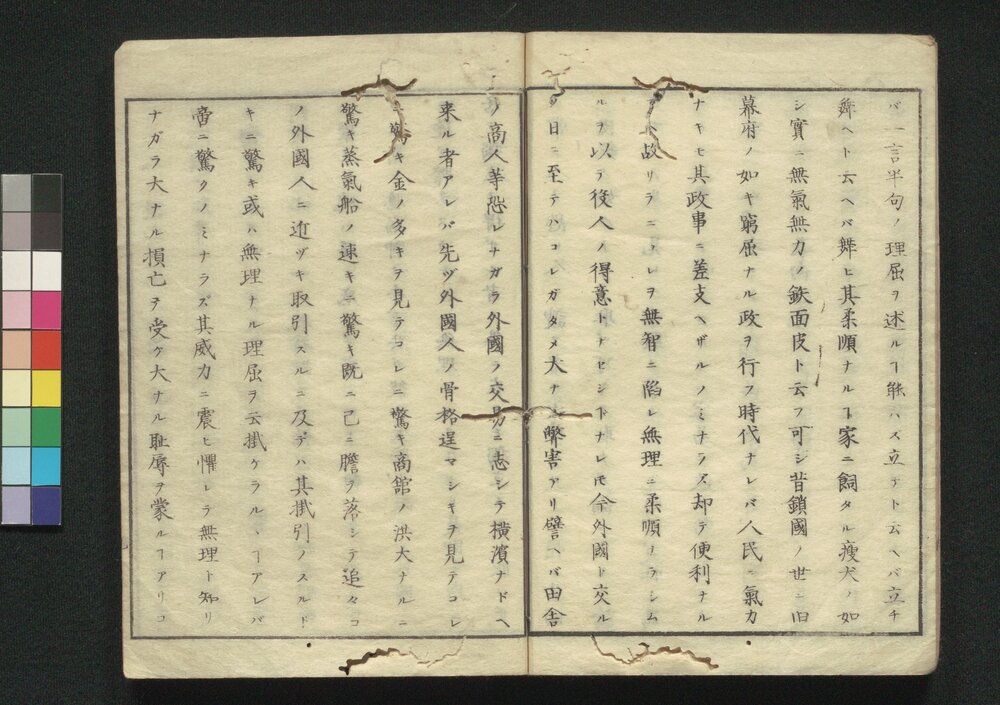 バ一言半句ノ理屈ヲ述ルヿ能ハズ立テト云ヘバ立チ
舞ヘト云ヘバ舞ヒ其柔順ナルヿ家ニ飼タル瘦犬ノ如
シ實ニ無氣無力ノ鉄面皮ト云フ可シ昔鎖國ノ世ニ旧
幕府ノ如キ窮屈ナル政ヲ行フ時代ナレバ人民ニ氣力
ナキモ其政事ニ差支ヘザルノミナラズ却テ便利ナル
故リラニコレヲ無智ニ陷レ無理ニ柔順ナラシム
ルヲ以テ役人ノ得意トナセシヿナレ𪜈今外國ト交ル
ノ日ニ至テハコレガタメ大ナル弊害アリ譬ヘバ田舎
ノ商人等恐レナガラ外國ノ交易ニ志シテ橫濱ナドヘ
来ル者アレバ先ヅ外國人ノ骨格逞マシキヲ見テコレ
ニ驚キ金ノ多キヲ見テコレニ驚キ商舘ノ洪大ナルニ
驚キ蒸氣船ノ速キニ驚キ既ニ己ニ膽ヲ落シテ追々コ
ノ外國人ニ近ヅキ取引スルニ及デハ其掛引ノスルド
キニ驚キ或ハ無理ナル理屈ヲ云掛ケラルヽヿアレバ
啻ニ驚クノミナラズ其威力ニ震ヒ懼レテ無理ト知リ
ナガラ大ナル損亡ヲ受ケ大ナル耻辱ヲ蒙ルヿアリコ